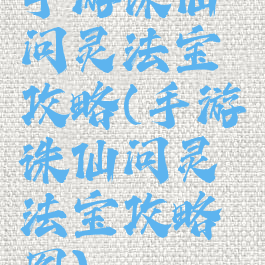 手游诛仙
问灵法宝
攻略(手游
诛仙问灵
法宝攻略
图)